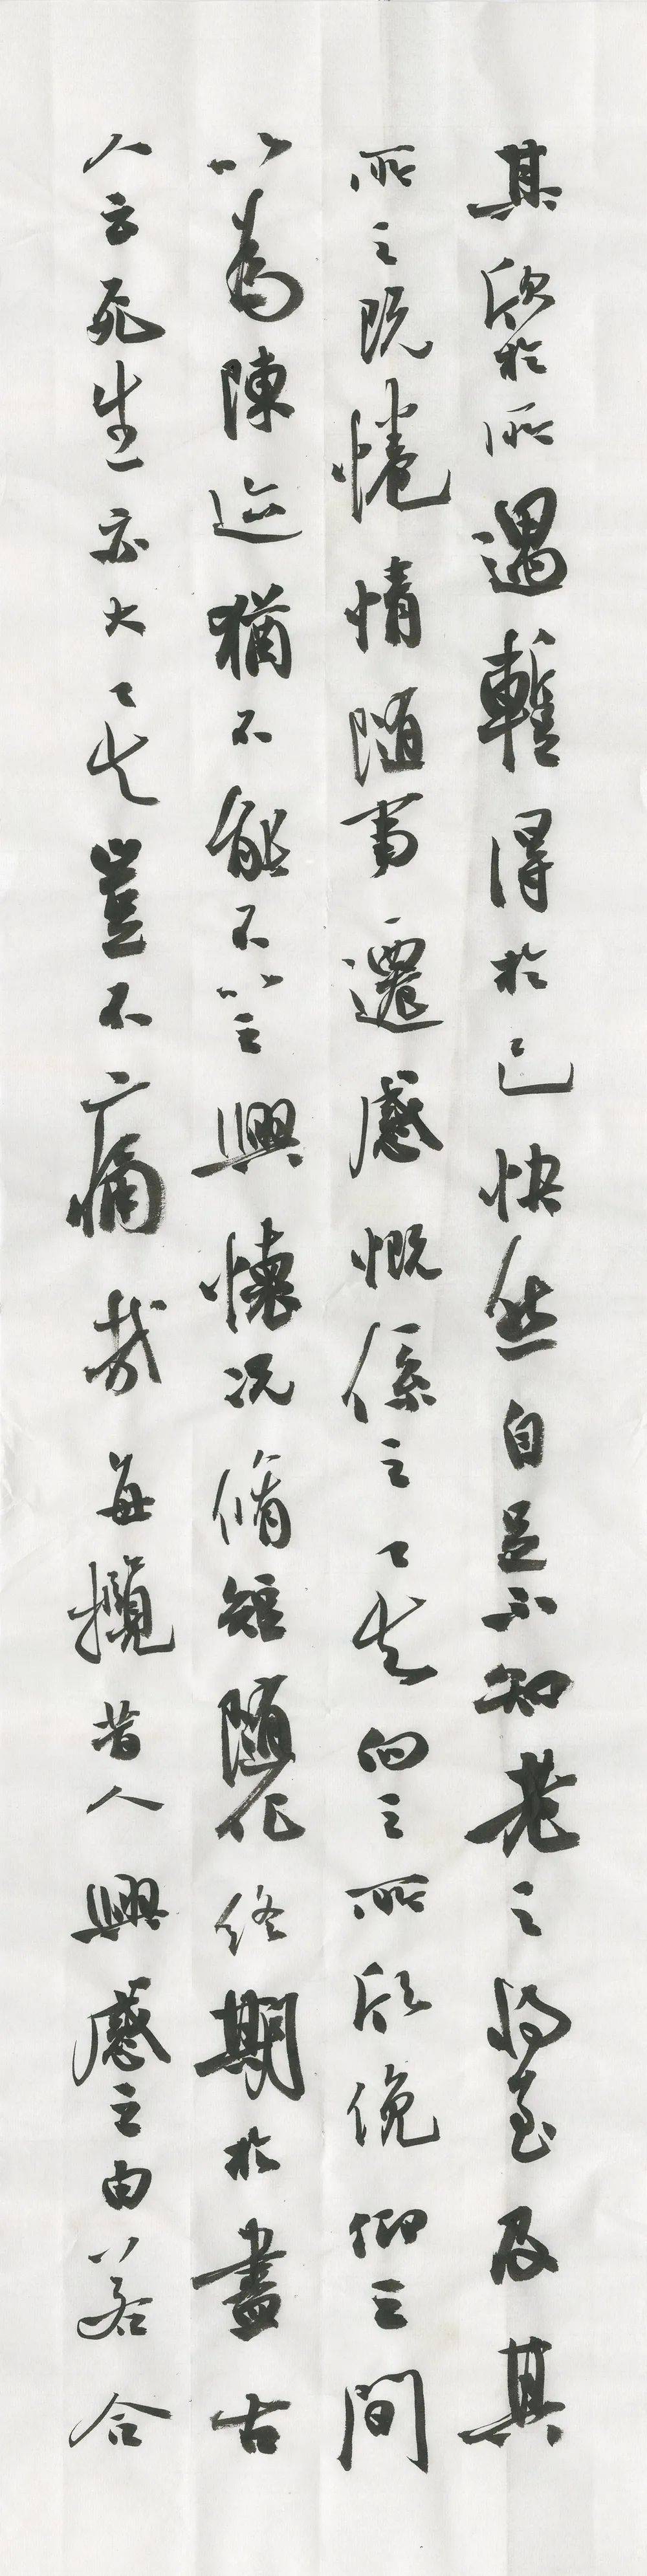 其欣於所遇暫得於己快然自足不知老之將至及其
所之既惓情隨事遷感慨係之矣向之所欣俛仰之間
以為陳迹猶不能不以之興懷況脩短隨化終期於盡古
人云死生亦大矣豈不痛哉每攬昔人興感之由若合